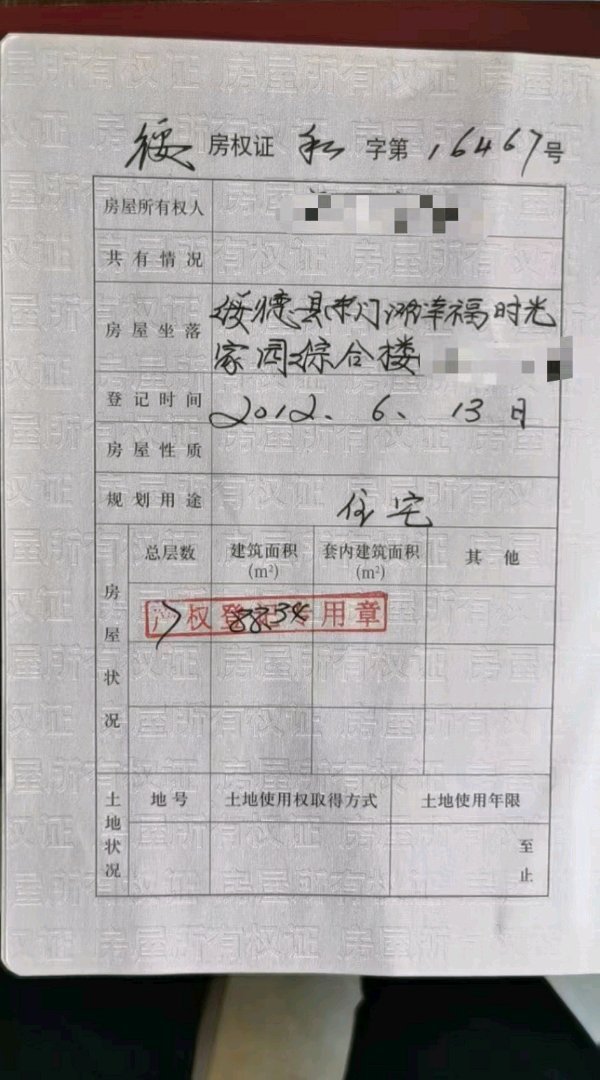 绥 房权证 私 字第 16467 号
房屋所有权人
共有情况
房屋坐落 绥德县东门滩幸福时光
家园综合楼
登记时间 2012. 6. 13日
房屋性质
规划用途 住宅
房屋状况
总层数 建筑面积(m²) 套内建筑面积(m²) 其他
7 88.34
产权登记专用章
土地状况
地号 土地使用权取得方式 土地使用年限
至
止